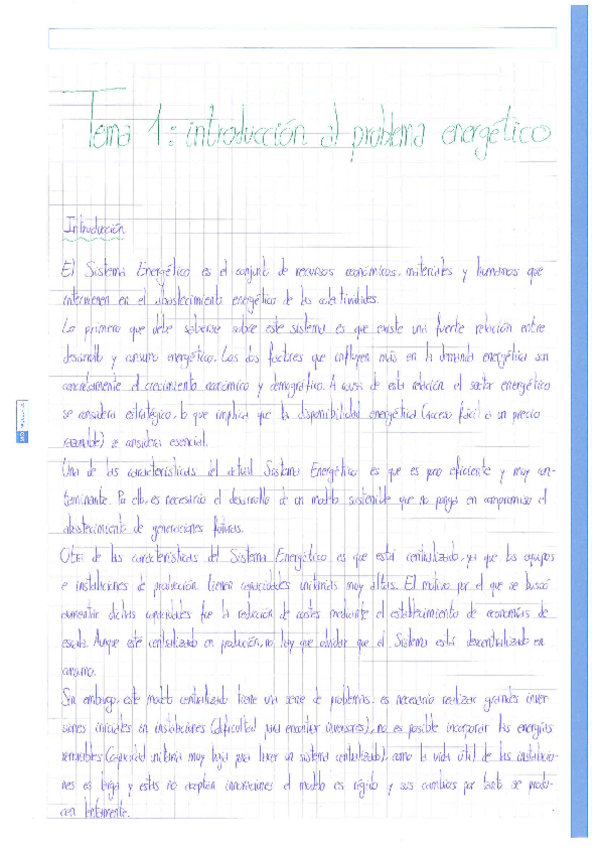 Tema 1: introducción al problema energético
Introducción
El Sistema Energético es el conjunto de recursos económicos, materiales y humanos que
intervienen en el abastecimiento energético de las colectividades.
Lo primero que debe saberse sobre este sistema es que existe una fuerte relación entre
desarrollo y consumo energético. Los dos factores que influyen más en la demanda energética son
concretamente el crecimiento económico y demográfico. A causa de esta relación el sector energético
se considera estratégico, lo que implica que la disponibilidad energética (acceso fácil a un precio
razonable) se considera esencial.
Una de las características del actual Sistema Energético es que es poco eficiente y muy con-
taminante. Por ello, es necesario el desarrollo de un modelo sostenible que no ponga en compromiso el
abastecimiento de generaciones futuras.
Otra de las características del Sistema Energético es que está centralizado, ya que los equipos
e instalaciones de producción tienen capacidades unitarias muy altas. El motivo por el que se buscó
aumentar dichas capacidades fue la reducción de costes mediante el establecimiento de economías de
escala. Aunque esté centralizado en producción, no hay que olvidar que el Sistema está descentralizado en
consumo.
Sin embargo, este modelo centralizado tiene una serie de problemas: es necesario realizar grandes inver-
siones iniciales en instalaciones (dificultad para encontrar inversores), no es posible incorporar las energías
renovables (capacidad unitaria muy baja para hacer un sistema centralizado), como la vida útil de las instalacio-
nes es larga y estas no aceptan innovaciones el modelo es rígido y sus cambios por tanto se produ-
cen lentamente.